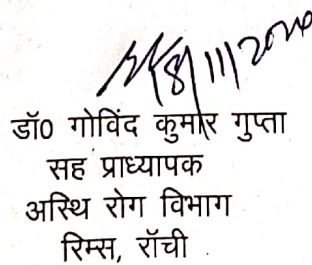 8/11/2020
डॉ0 गोविंद कुमार गुप्ता
सह प्राध्यापक
अस्थि रोग विभाग
रिम्स, रॉची